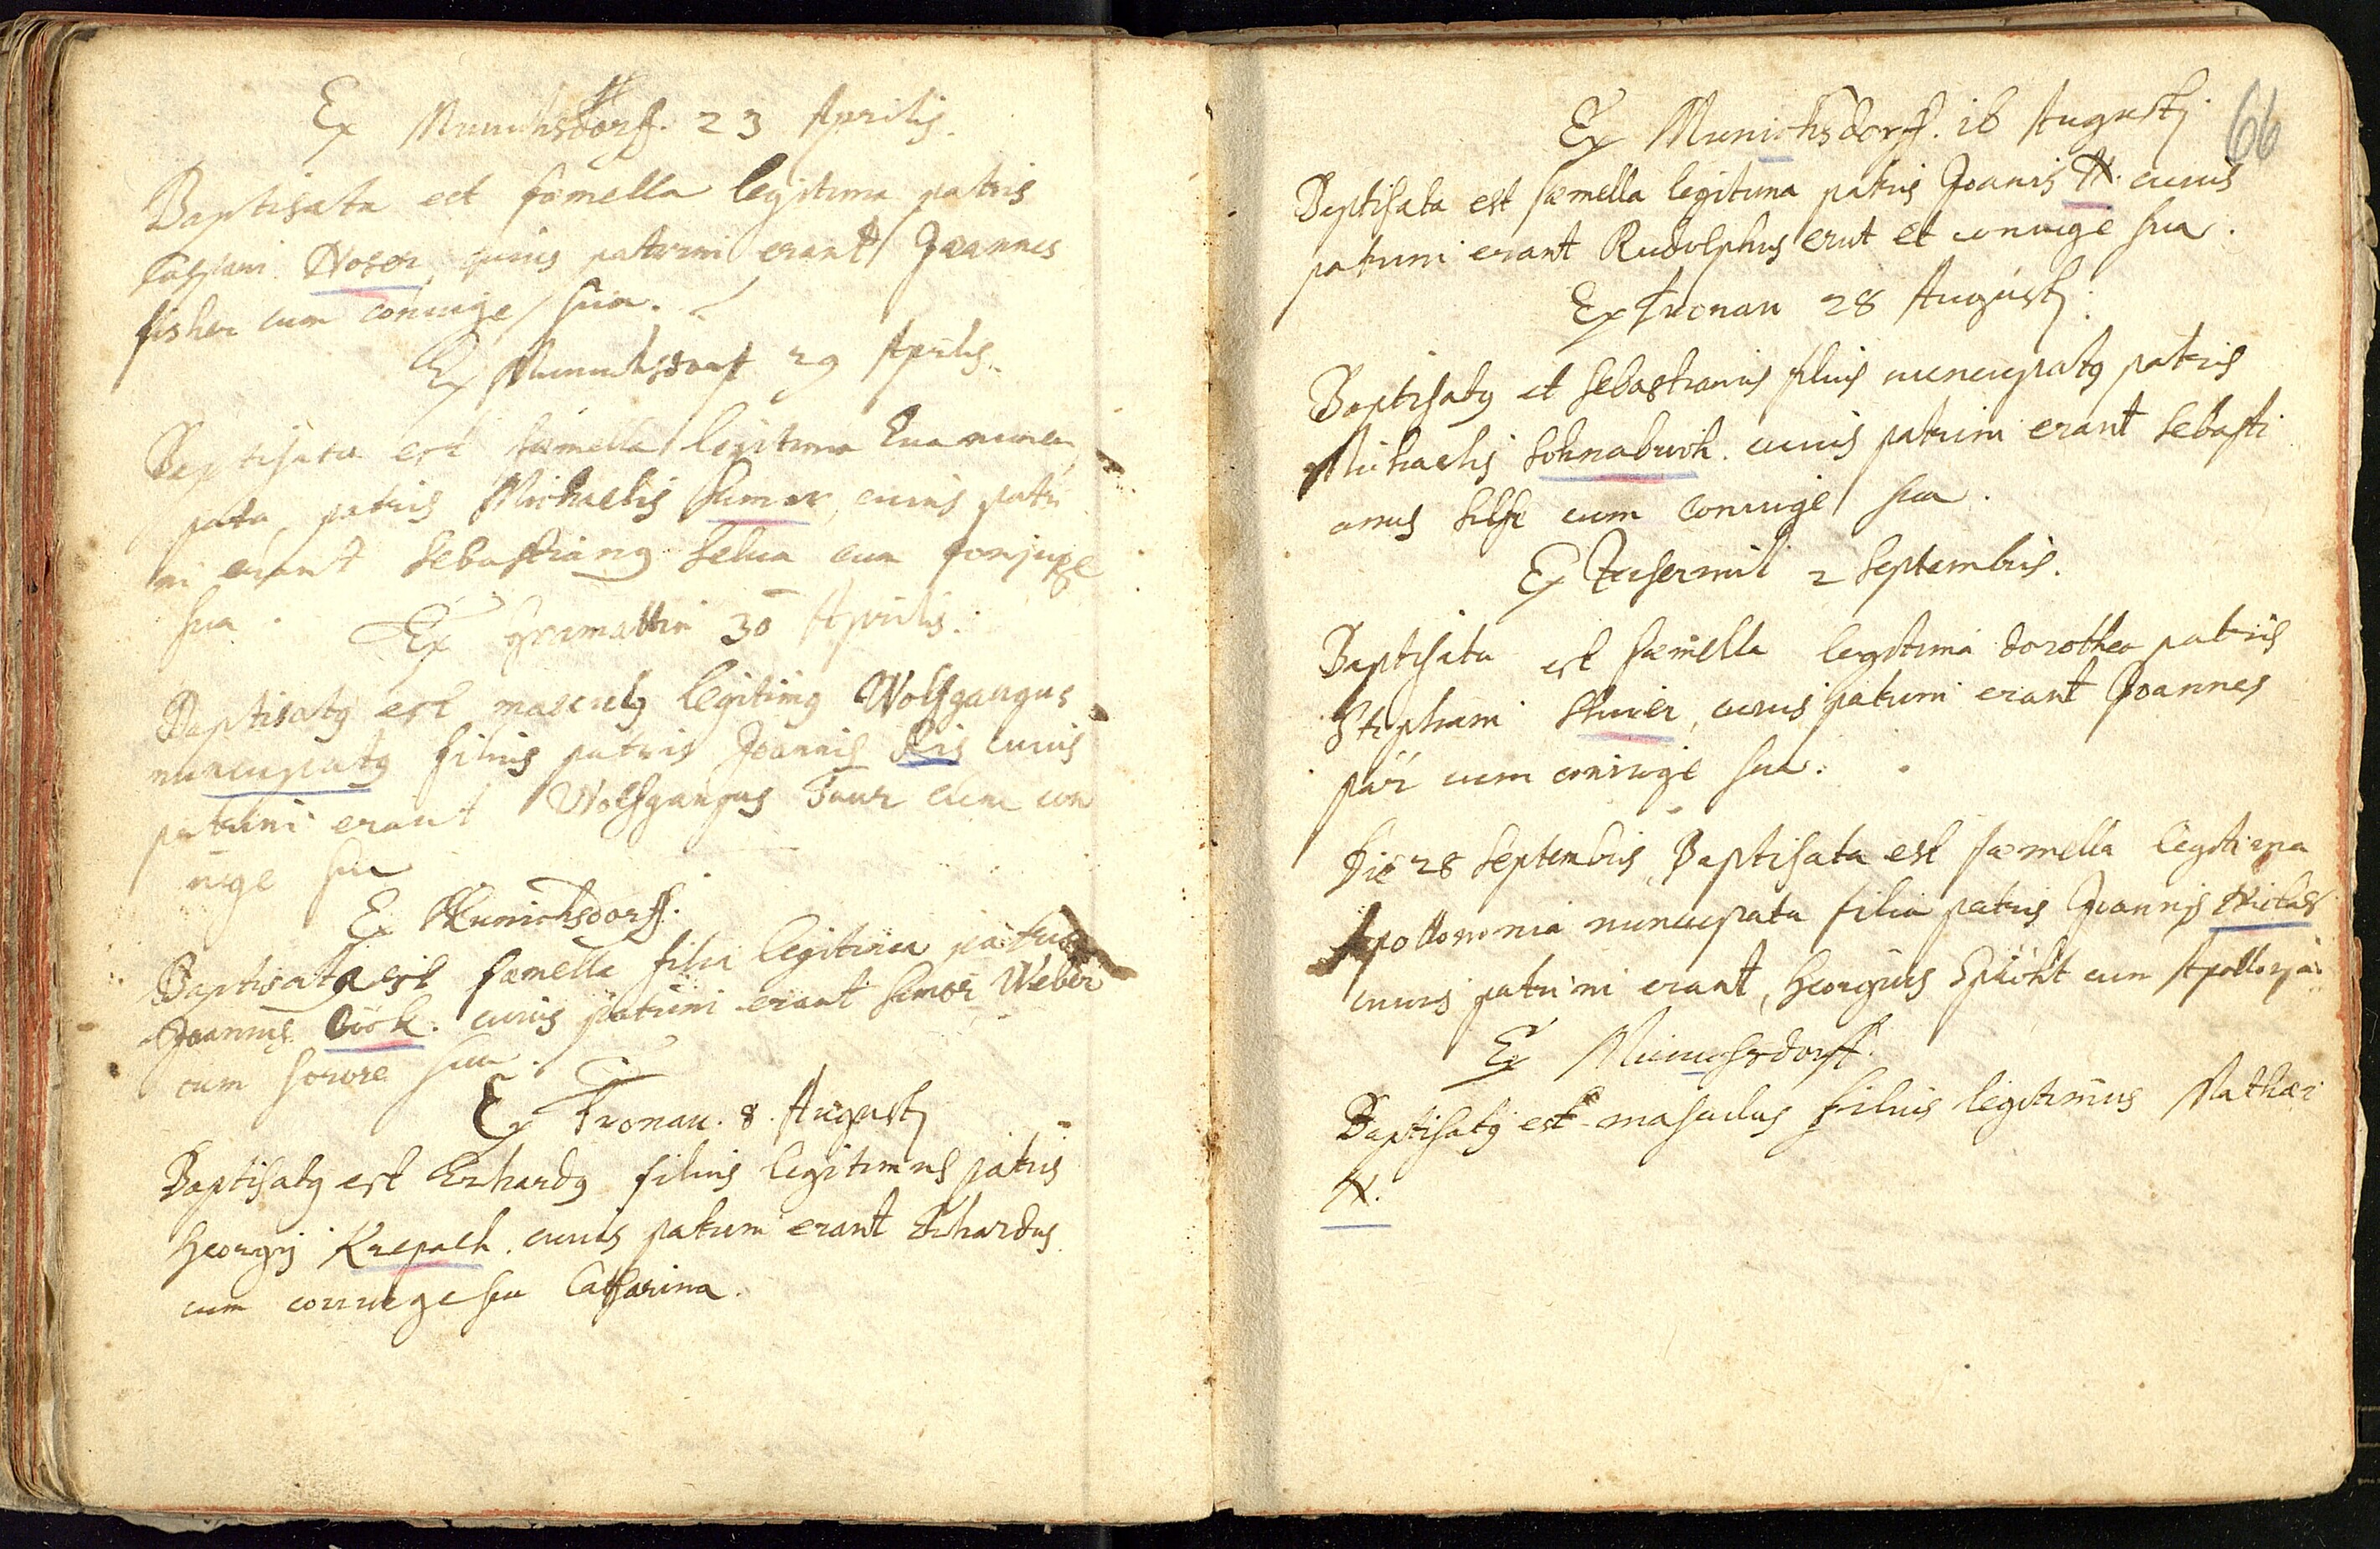 Ex Munichsdorff. 23 Aprilis.
Baptisata est fœmella legitima patris
Caspari Hoser, cuius patrini erant Joannes
fisher cum coniuge sua.
Ex Munichsdorff 29 Aprilis.
Baptisata est fœmella legitima Eua nuncu
pata, patris Michaelis Sumer, cuius patri
ni erant Sebastiang Selua cum conjuge
sua.
Ex 30 Aprilis.
Baptisatg est masculg legitimg Wolfgangus
nuncupatg filius patris Joannis cuius
patrini erant Wolfgangus Taur cum con
iuge sua
Ex Munichsdorff.
Baptisata est fœmella filia legitima patris
Joannis Cuius patrini erant Simon Weber
cum sorore sua.
Ex Tronau. 8. Augustj
Baptisatg est Erhardg filius legitimus patris
Georgij Krepach. cuius patrini erant Erhardus
cum coniuge sua Catharina.
66
Ex Munichsdorff. 16 Augustj.
Baptisata est fœmella legitima patris Joanis N. cuius
patrini erant Rudolphus erut et coniuge sua.
Ex Tronau 28 Augustj.
Baptisatg est Sebastianus filius nuncupatg patris
Michaelis Sohnabush. cuius patrini erant Sebasti
anus cum coniuge sua.
Ex 2 Septembris.
Baptisata est fœmella legitima dorothea patris
Stephani cuius patrini erant Joannes
pär cum coniuge sua.
Die 28 Septembris, Baptisata est fœmella legitima
Apollononia nuncupata filia patris Joannis Niclas
cuius patrini erant, Georgius Spücht cum Apollonia
Ex Munichsdorff.
Baptisatg est masculus filius legitimus Mathæi
N.